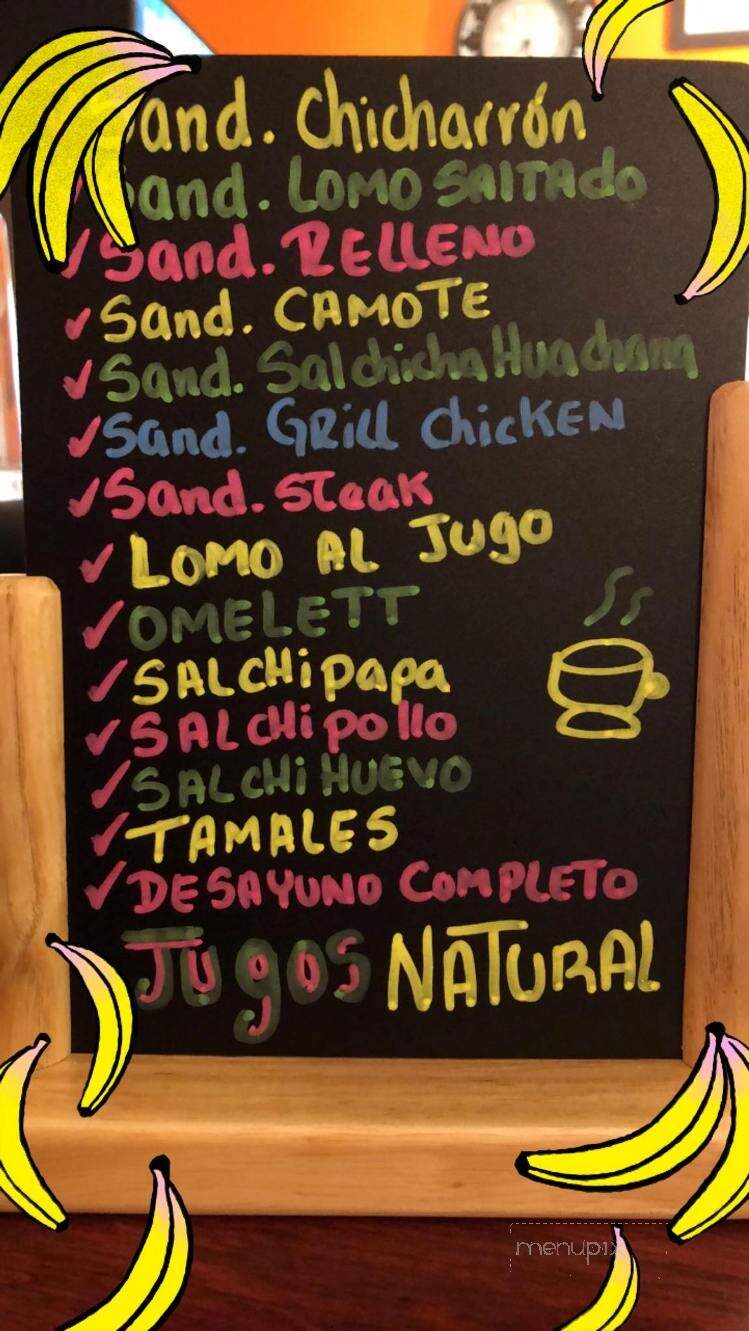 Sand. Chicharrón
Sand. LOMO SAlTAdo
Sand. RELLENO
Sand. CAMOTE
Sand. Salchicha Huachana
Sand. GRill ChicKEN
Sand. STeaK
LOMO AL Jugo
OMELETT
SALCHipapa
SALCHipollo
SALCHi HUEVO
TAMALES
DESAYUNO COMPLETO
JUgOS NATURAL
menupix